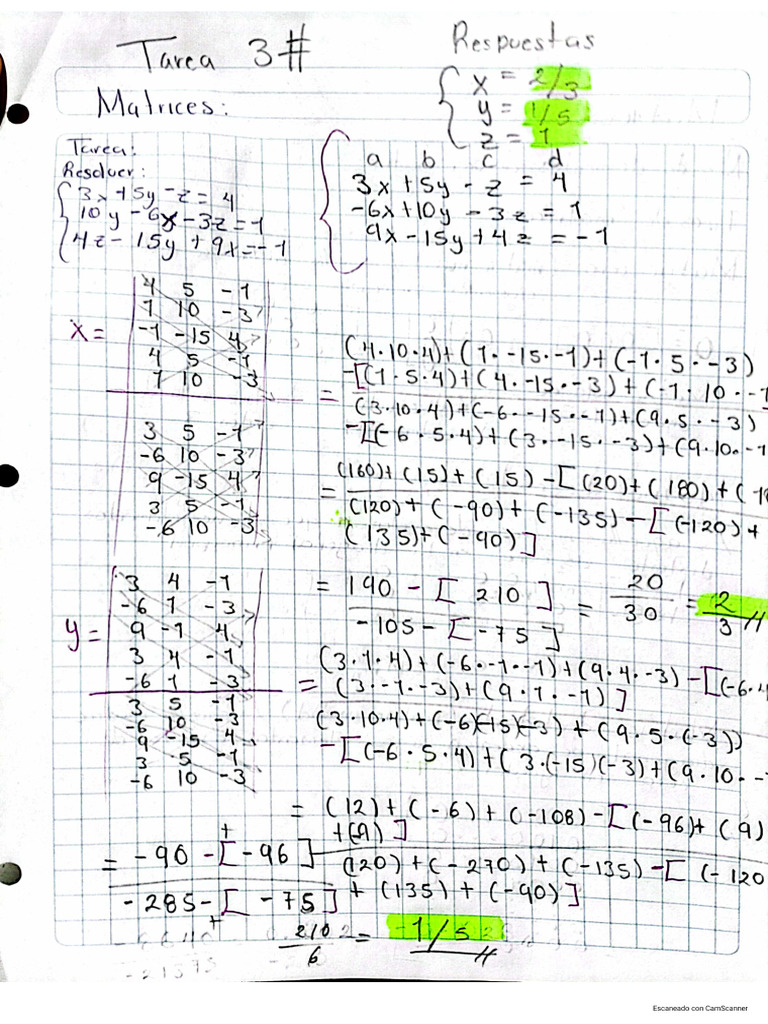 Tarea 3#
Respuestas
x = 2/3
y = 1/5
z = 1
Matrices:
Tarea:
Resolver:
3x +5y -z = 4
10y - 6x - 3z = 1
4z - 15y + 9x = -1
a b c d
3x +5y - z = 4
-6x+10y - 3z = 1
9x -15y +4z = -1
x =
4 5 -1
1 10 -3
-1 -15 4
4 5 -1
1 10 -3
3 5 -1
-6 10 -3
9 -15 4
3 5 -1
-6 10 -3
(4·10·4)+(1·-15·-1)+(-1·5·-3)
-[(1·5·4)+(4·-15·-3)+(-1·10·-1
=
(3·10·4)+(-6·-15·-1)+(9·5·-3)
-[(-6·5·4)+(3·-15·-3)+(9·10·-1
= (160)+(15)+(15) -[(20)+(180)+(-1
(120)+(-90)+(-135) -[(-120)+
(135)+(-90)]
= 190 - [210] = 20 = 2
-105 - [-75] 30 3
y =
3 4 -1
-6 1 -3
9 -1 4
3 4 -1
-6 1 -3
3 5 -1
-6 10 -3
9 -15 4
3 5 -1
-6 10 -3
(3·1·4)+(-6·-1·-1)+(9·4·-3) -[(-6·4
= (3·-1·-3)+(9·1·-1)]
(3·10·4)+(-6)(-15)(-3)+(9·5·(-3))
-[(-6·5·4)+(3·(-15)(-3)+(9·10·-
= (12)+(-6)+(-108) -[(-96)+(9)
+(-9)]
(120)+(-270)+(-135) -[(-120
+(135)+(-90)]
+
= -90 -[-96]
-285 -[-75]
+
210 = -1/5
6
Escaneado con CamScanner